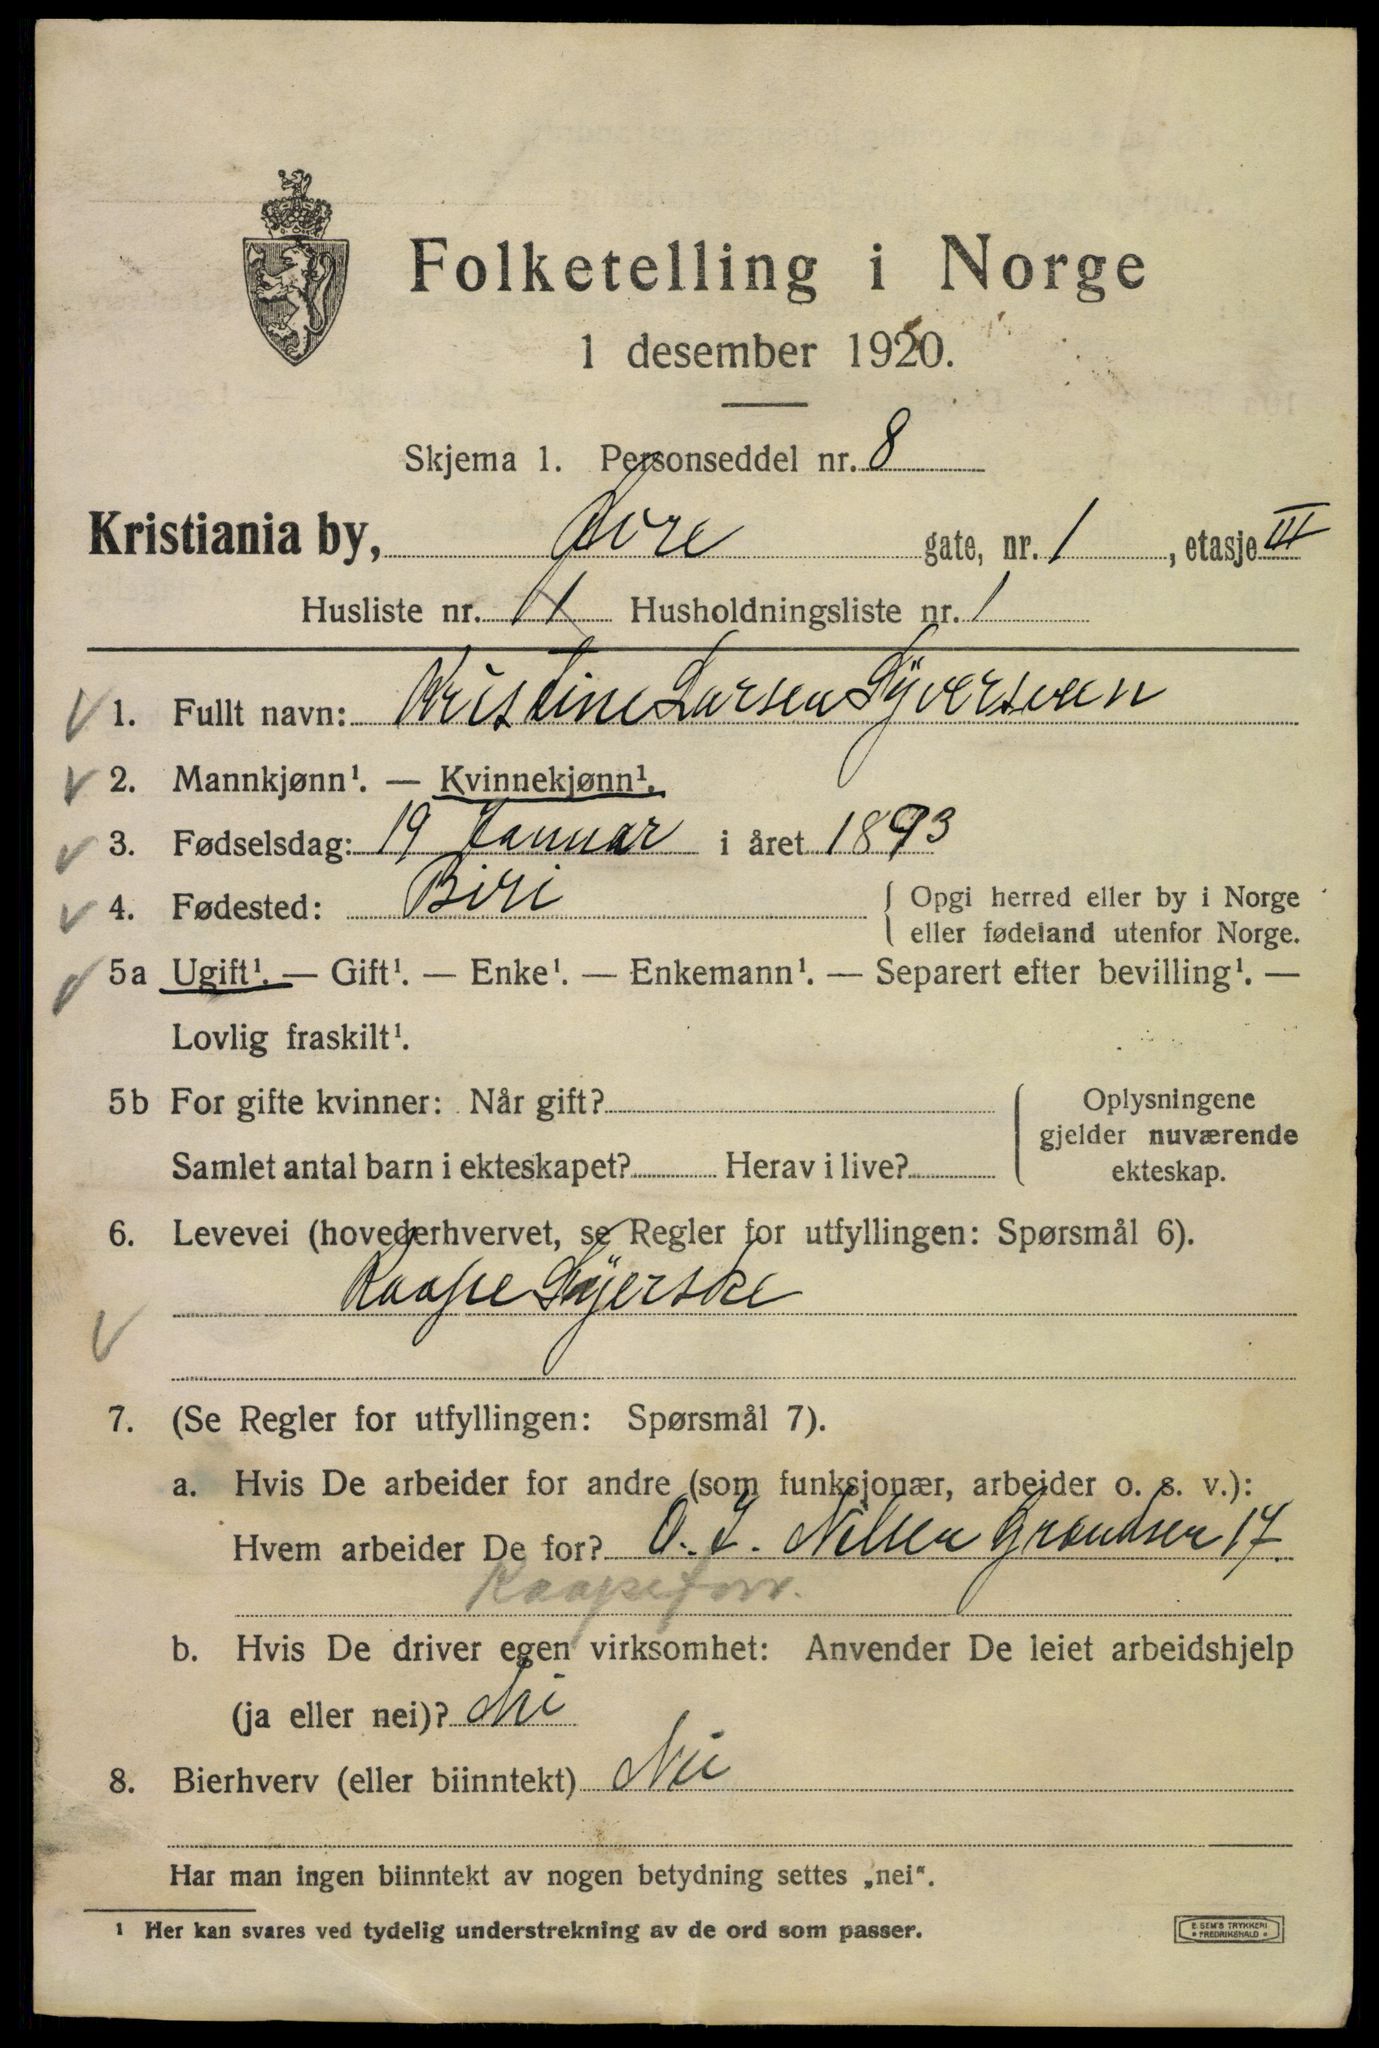 Folketelling i Norge
1 desember 1920.
Skjema 1. Personseddel nr. 8
Kristiania by, Løre gate, nr. 1, etasje III
Husliste nr. 11 Husholdningsliste nr. 1
1. Fullt navn: Kristine Larsen Syversveen
2. Mannkjønn¹. — Kvinnekjønn¹.
3. Fødselsdag: 19 Januar i året 1893
4. Fødested: Biri { Opgi herred eller by i Norge
eller fødeland utenfor Norge.
5a Ugift¹. — Gift¹. — Enke¹. — Enkemann¹. — Separert efter bevilling¹. —
Lovlig fraskilt¹.
5b For gifte kvinner: Når gift? Oplysningene
gjelder nuværende
Samlet antal barn i ekteskapet? Herav i live? ekteskap.
6. Levevei (hovederhvervet, se Regler for utfyllingen: Spørsmål 6).
Kaape Syerske
7. (Se Regler for utfyllingen: Spørsmål 7).
a. Hvis De arbeider for andre (som funksjonær, arbeider o. s. v.):
Hvem arbeider De for? O. I. Nilsen Grændsen 17.
Kaapeforr.
b. Hvis De driver egen virksomhet: Anvender De leiet arbeidshjelp
(ja eller nei)? Nei
8. Bierhverv (eller biinntekt) Nei
Har man ingen biinntekt av nogen betydning settes „nei“.
¹ Her kan svares ved tydelig understrekning av de ord som passer.
E. SEM'S TRYKKERI
FREDRIKSHALD